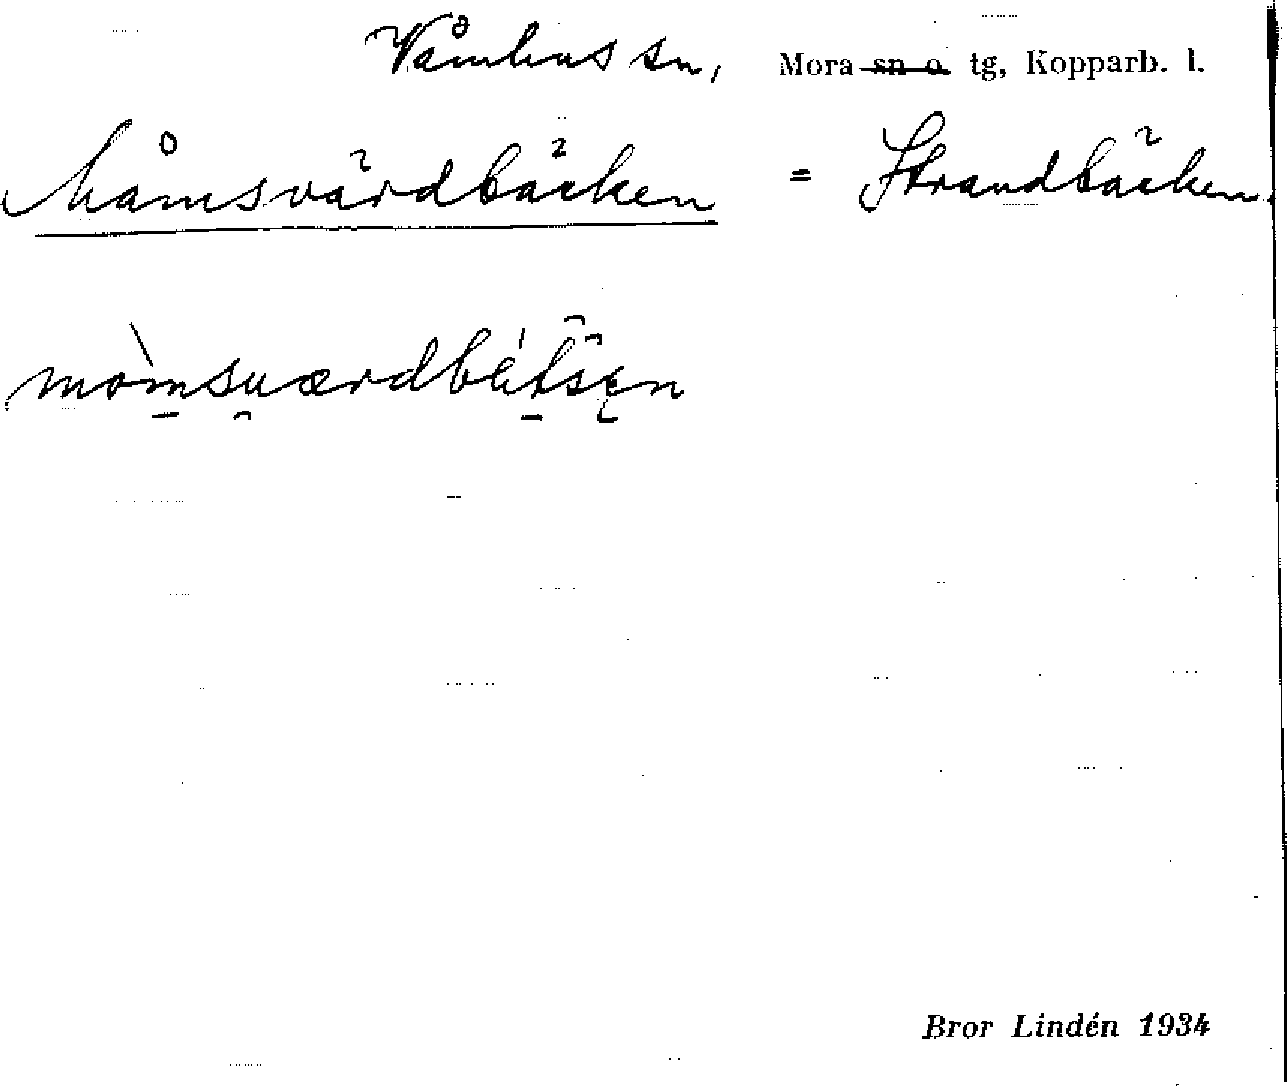 Våmhus sn, Mora sn o. tg, Kopparb. l.
Måmsvärdbäcken = Strandbäcken.
Bror Lindén 1934